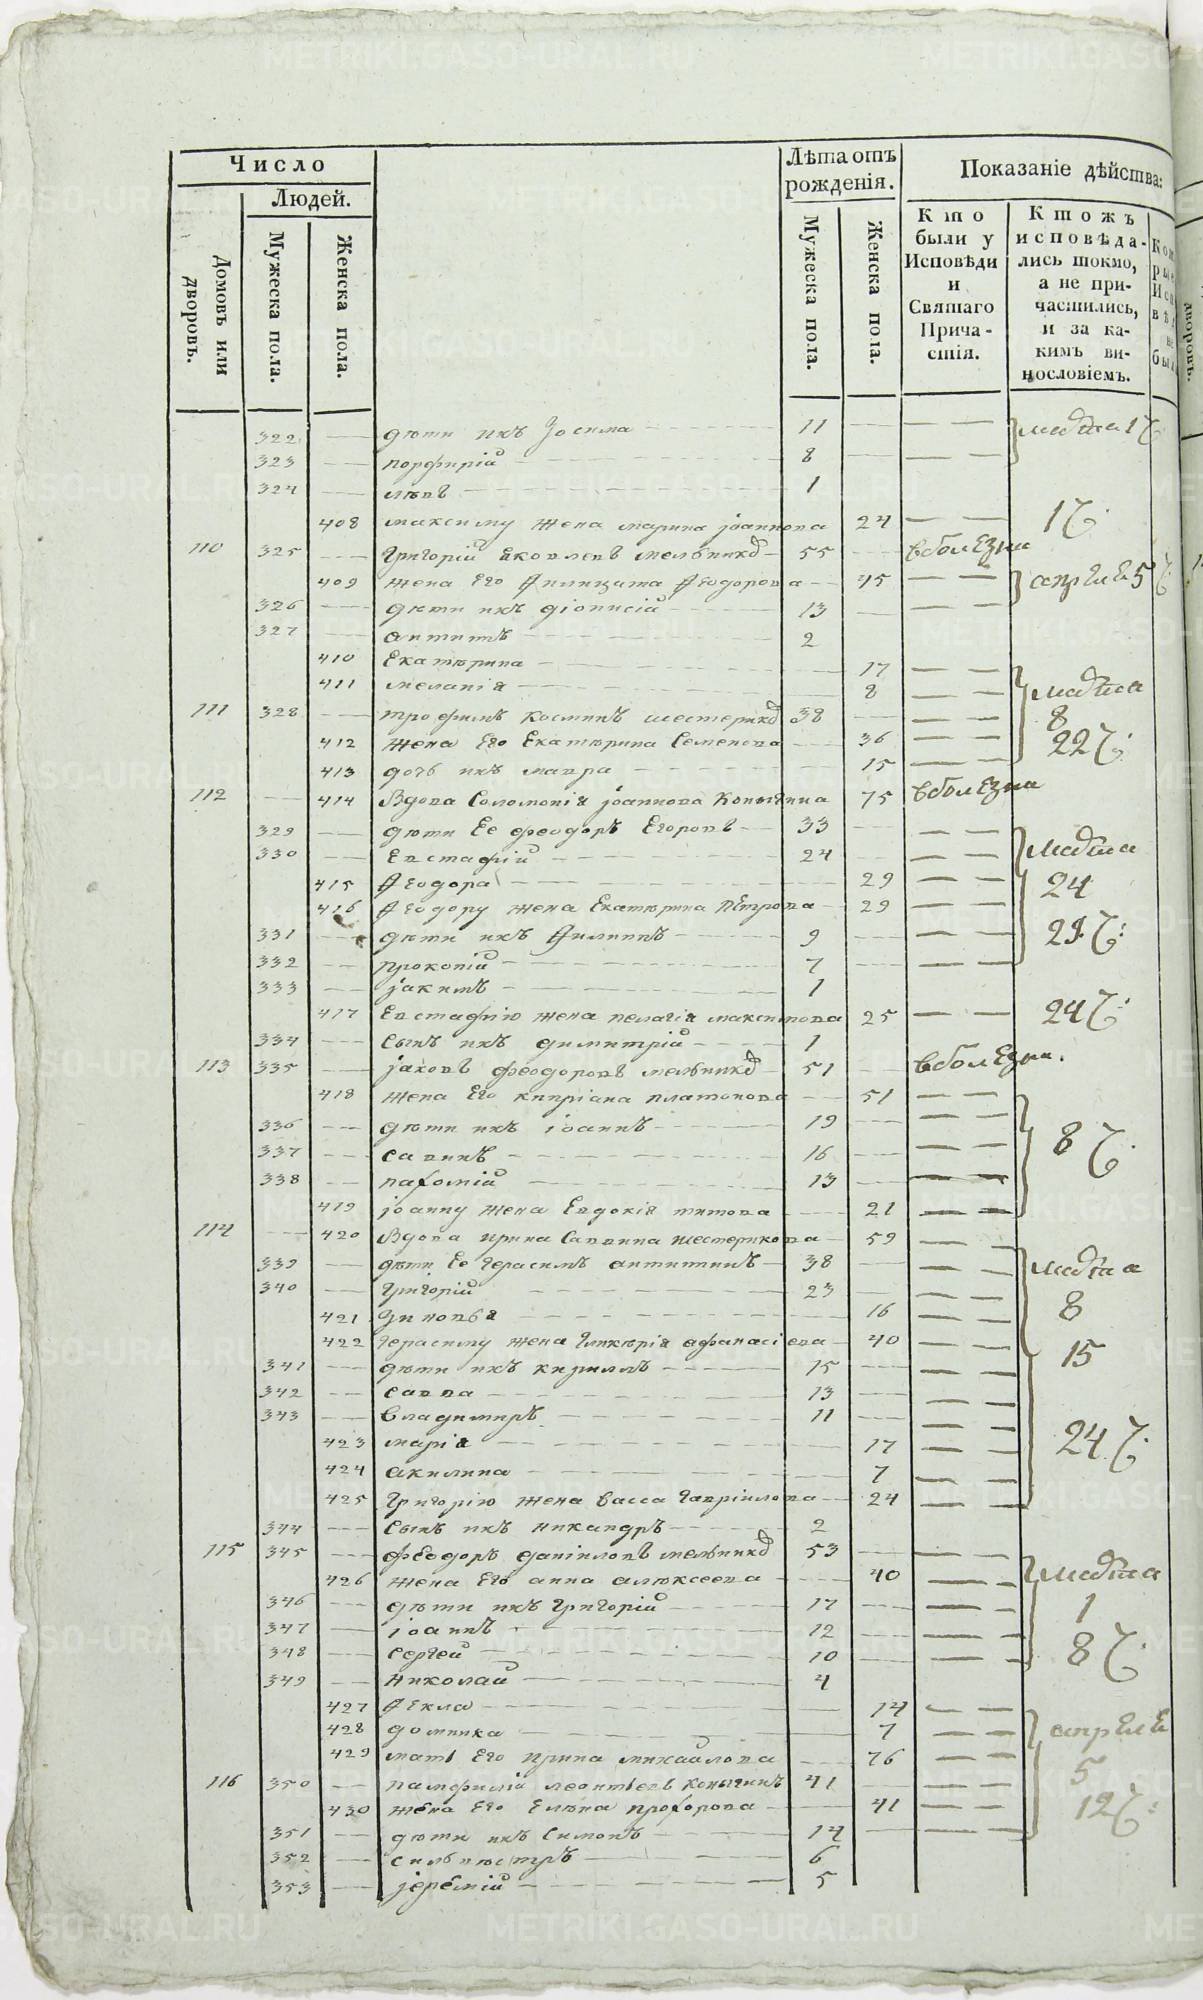 Число
Людей.
Домовъ или дворовъ.
Мужеска пола.
Женска пола.
Лѣта отъ рожденія.
Мужеска пола.
Женска пола.
Показаніе дѣйства:
Кто были у Исповѣди и Святаго Причастія.
Ктожъ исповѣдались токмо, а не причастились, и за какимъ винословіемъ.
322 дѣти ихъ Зосима 11 марта 17
323 порфирій 8
324 левъ 1
408 максиму жена марина іоаннова 24 17
110 325 Григорій Яковлевъ мельников 55 в болезни
409 жена Его Филицата Феодорова 45 апреля 5
326 дѣти ихъ діонисій 13
327 антипъ 2
410 Екатѣрина 17
411 меланія 8 марта
111 328 трофимъ космин шестериков 38 8
412 жена Его Екатѣрина Семенова 36 22
413 дочь ихъ мавра 15
112 414 Вдова Соломонія іоаннова Копытина 75 в болезни
329 дѣти Ее феодоръ Егоровъ 33
330 Евстафій 24 марта
415 Феодора 29 24
416 Феодору жена Екатѣрина Петрова 29
331 дѣти ихъ Филиппъ 9 29
332 прокопій 7
333 іакимъ 1
417 Евстафію жена пелагія максимова 25 24
334 Сынъ ихъ димитрій 1
113 335 іаковъ феодоровъ мельников 51 в болезни.
418 жена Его кипріана платонова 51
336 дѣти ихъ іоаннъ 19 8
337 савинъ 16
338 пахомій 13
419 іоанну жена Евдокія титова 21
114 420 Вдова ирина Саввина шестерикова 59
339 дѣти Ее Герасимъ антипинъ 38 марта
340 Григорій 23 8
421 Зиновья 16
422 Герасиму жена Гликѣрія афанасіева 40 15
341 дѣти ихъ кириллъ 15
342 савва 13
343 владимиръ 11 24
423 марія 17
424 акилина 7
425 Григорію жена васса Гавріилова 24
344 Сынъ ихъ никандръ 2
115 345 феодоръ даніиловъ мельников 53
426 жена Его анна алѣксеева 40 марта
346 дѣти ихъ Григорій 17 1
347 іоаннъ 12
348 Сергей 10 8
349 николай 4
427 Фекла 14
428 домника 7 апреля
429 мать Его ирина михайлова 76
116 350 памфилій леонтіевъ копытинъ 41 5
430 жена Его Елѣна прохорова 41 12
351 дѣти ихъ Симонъ 14
352 сильвестръ 6
353 іеремій 5